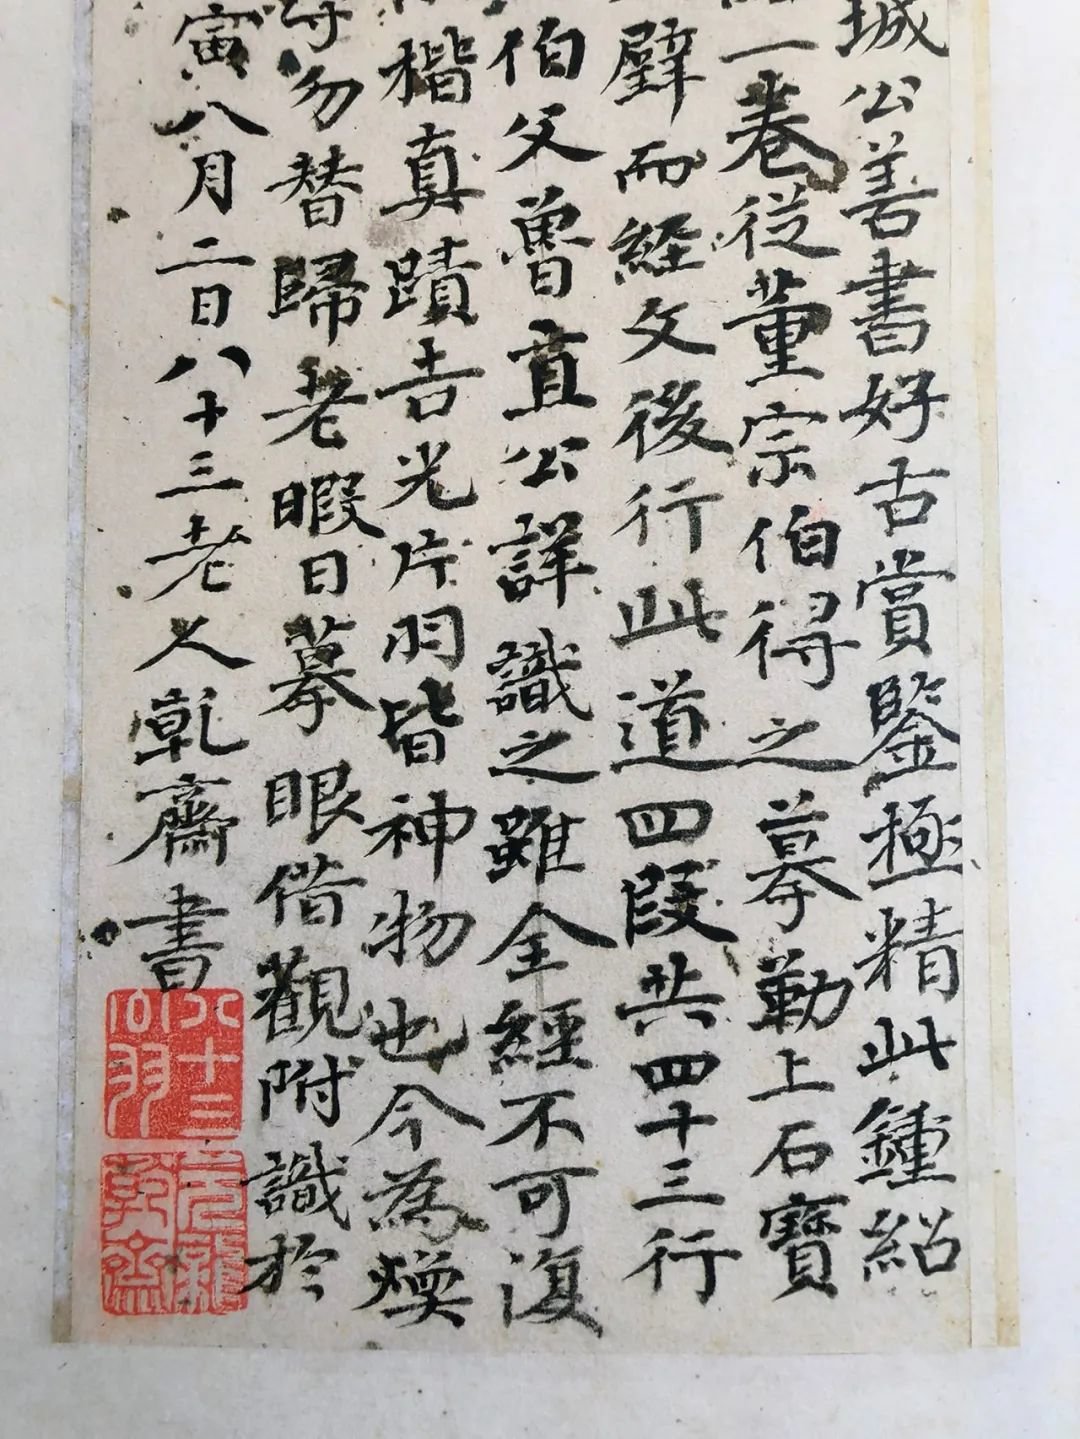 城公善書好古賞鑒極精此鍾紹
一卷從董宗伯得之摹勒上石寶
壁而經文後行此道四段共四十三行
伯父曹直公詳識之雖全經不可復
楷真蹟吉光片羽皆神物也今為煥
勿替歸老暇日摹眼借觀附識於
寅八月二日八十三老人乾齋書
八十三
元龍
乾齋